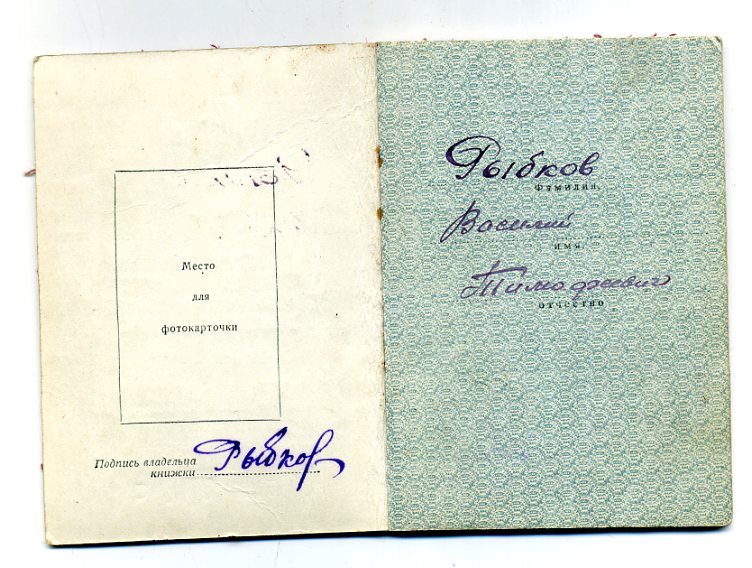 Место
для
фотокарточки
Подпись владельца
книжки
Рыбков
Рыбков
фамилия
Василий
имя
Тимофеевич
отчество